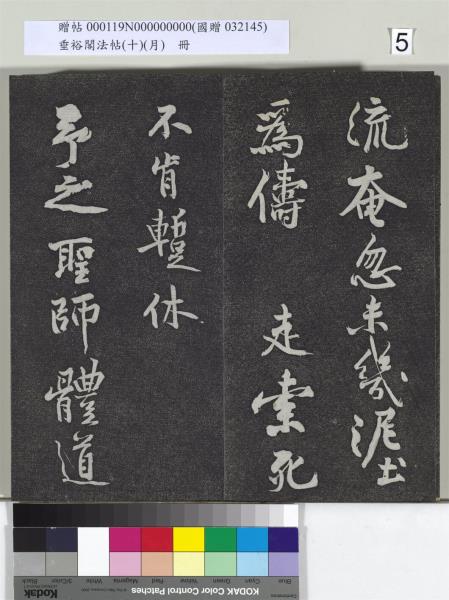 贈帖 000119N000000000(國贈 032145)
垂裕閣法帖(十)(月) 冊
5
流奄忽未幾泥土
為儔 走索死
不肯暫休
予之聖師體道
Blue Cyan Green Yellow Red Magenta White 3/Color Black
Kodak
KODAK Color Control Patches